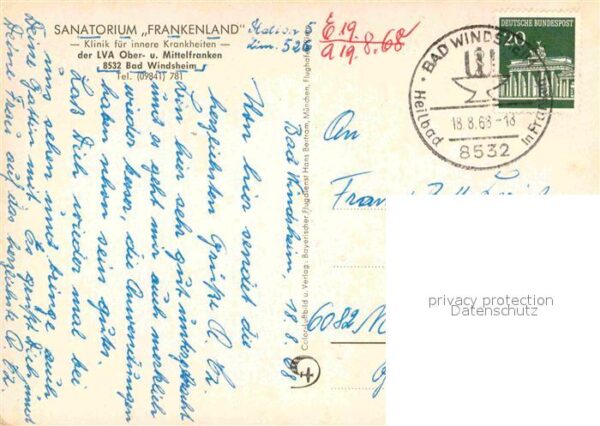 SANATORIUM „FRANKENLAND"
— Klinik für innere Krankheiten —
der LVA Ober- u. Mittelfranken
8532 Bad Windsheim
Tel. (09841) 781
Station 5
Zim. 526
E 19.
A 19.8.68
DEUTSCHE BUNDESPOST
20
BAD WINDSHEIM
18.8.68-18
8532
Heilbad in Franken
Colorluftbild u. Verlag: Bayerischer Flugdienst Hans Bertram, München, Flughafen
Bad Windsheim 18.8.68
Von hier sendet die
herzlichsten Grüße
Bin hier sehr gut untergebracht
und es geht mir auch merklich
wieder besser, die Anwendungen
haben schon sein gutes.
Laß Dich wieder mal bei
uns sehen und bringe auch
Deine Gattin mit. Es grüßt Dich und
Deine Frau auf das herzlichste
An
6082
privacy protection
Datenschutz